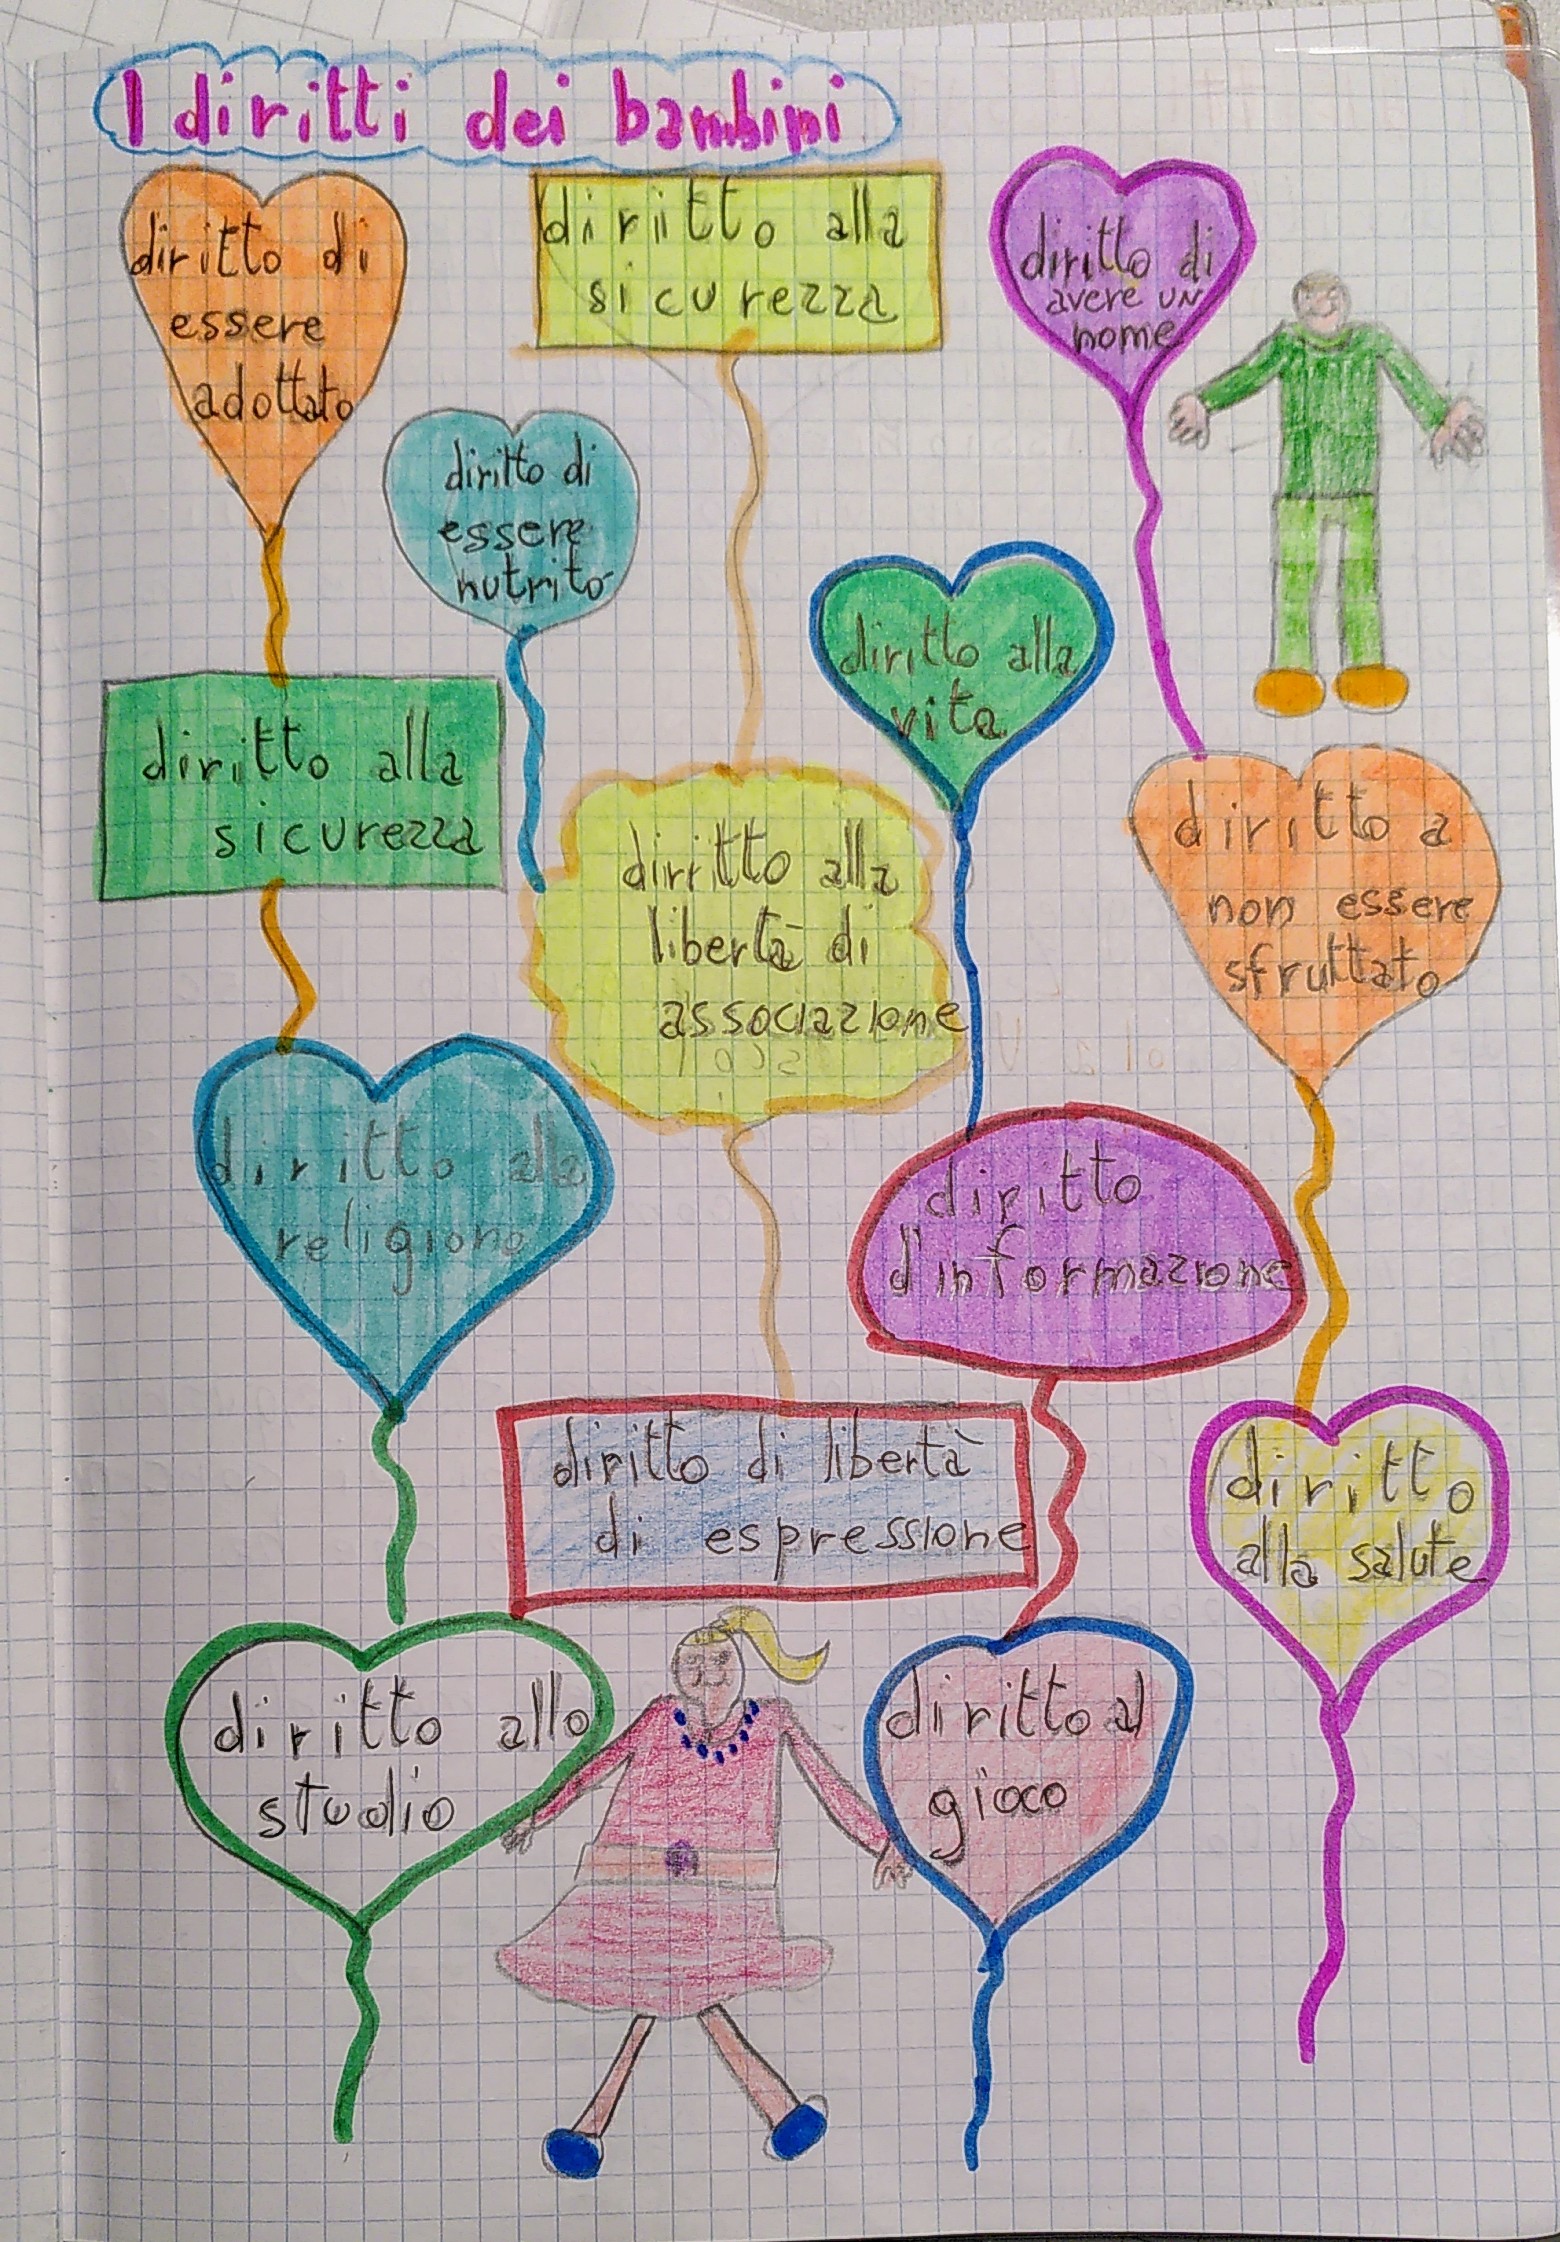 I diritti dei bambini
diritto di
essere
adottato
diriitto alla
sicurezza
diritto di
avere un
nome
diritto di
essere
nutrito
diritto alla
vita
diritto alla
sicurezza
dirritto alla
libertà di
associazione
diritto a
non essere
sfruttato
diritto alla
religione
diritto
d'informazione
diritto di libertà
di espressione
diritto
alla salute
diritto allo
studio
diritto al
gioco